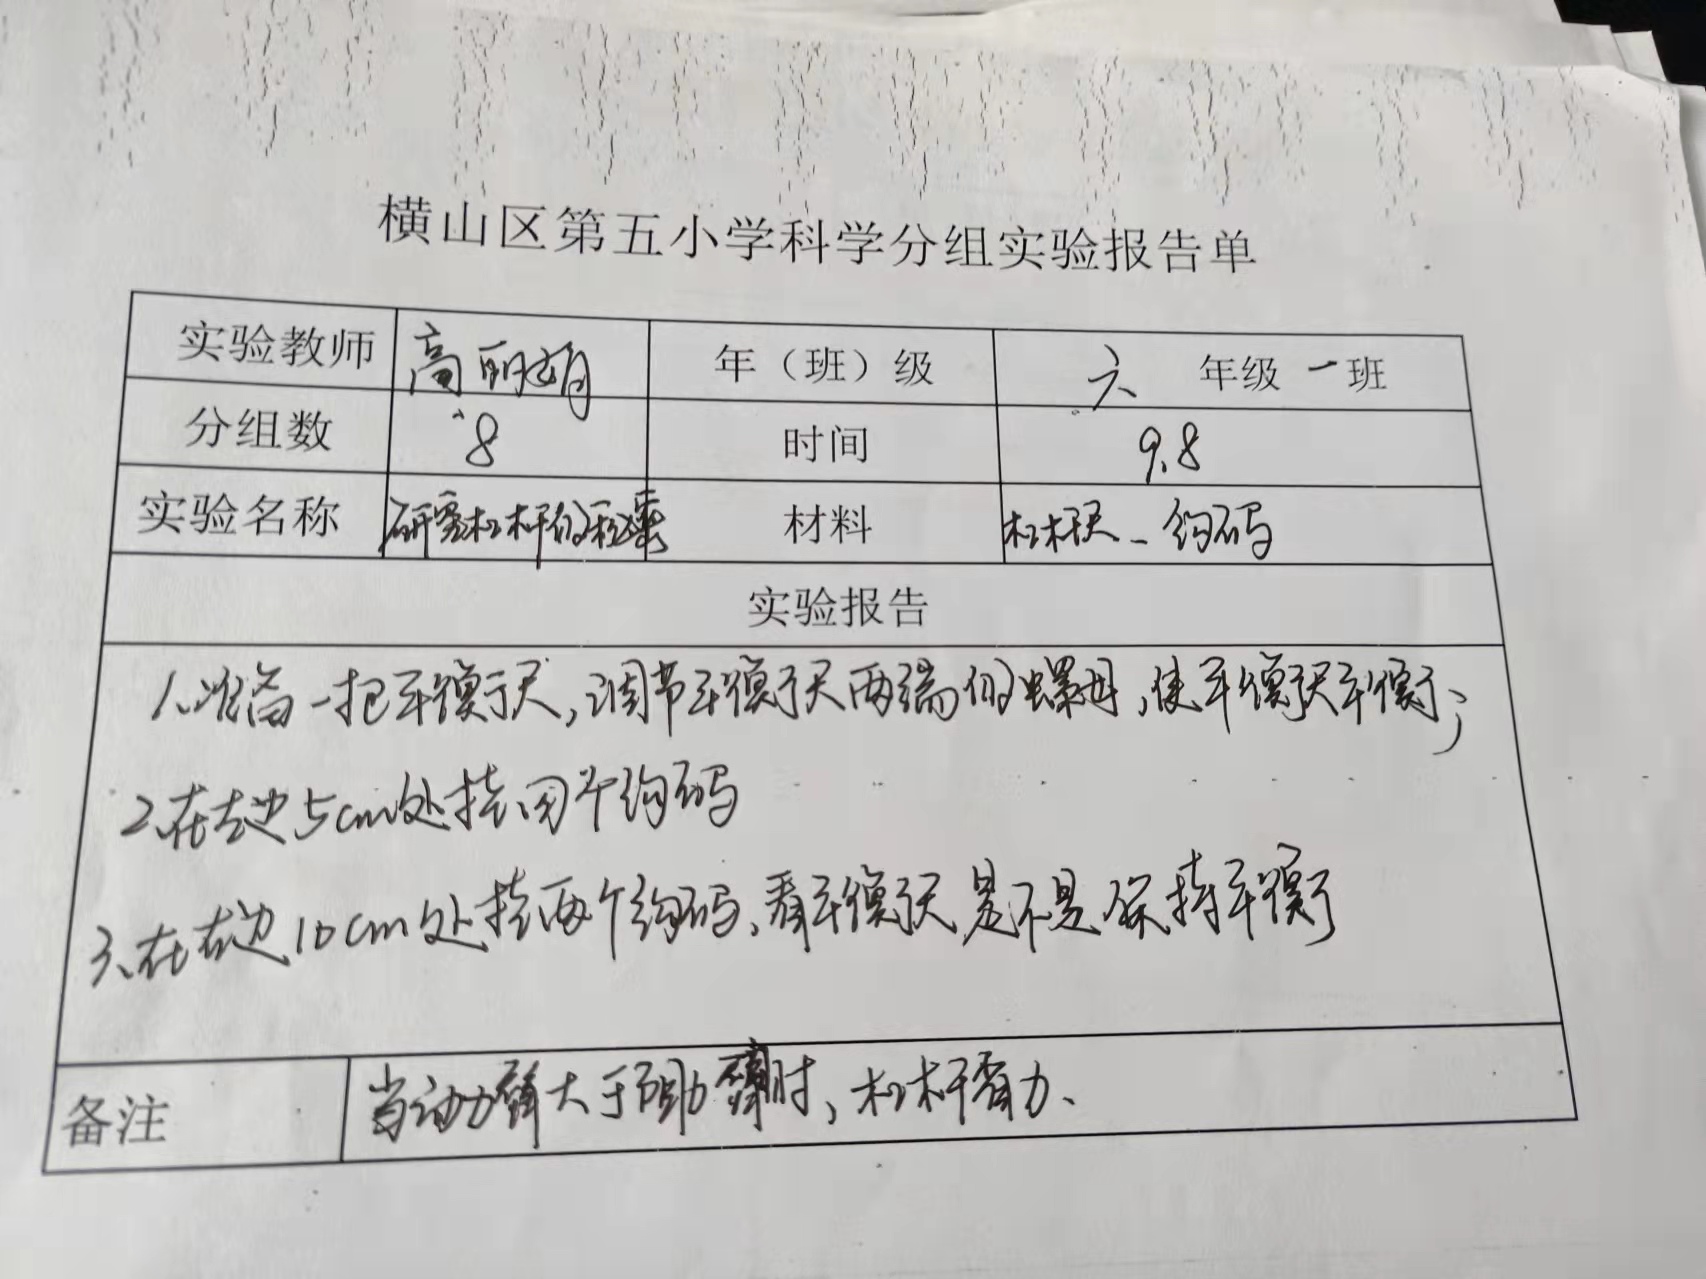 横山区第五小学科学分组实验报告单
实验教师 高丽娟 年（班）级 六 年级 一 班
分组数 8 时间 9.8
实验名称 研究杠杆的秘密 材料 杠杆尺、钩码
实验报告
1、准备一把平衡尺，调节平衡尺两端的螺母，使平衡尺平衡；
2、在左边5cm处挂四个钩码
3、在右边10cm处挂两个钩码，看平衡尺是不是保持平衡
备注 当动力臂大于阻力臂时，杠杆省力、